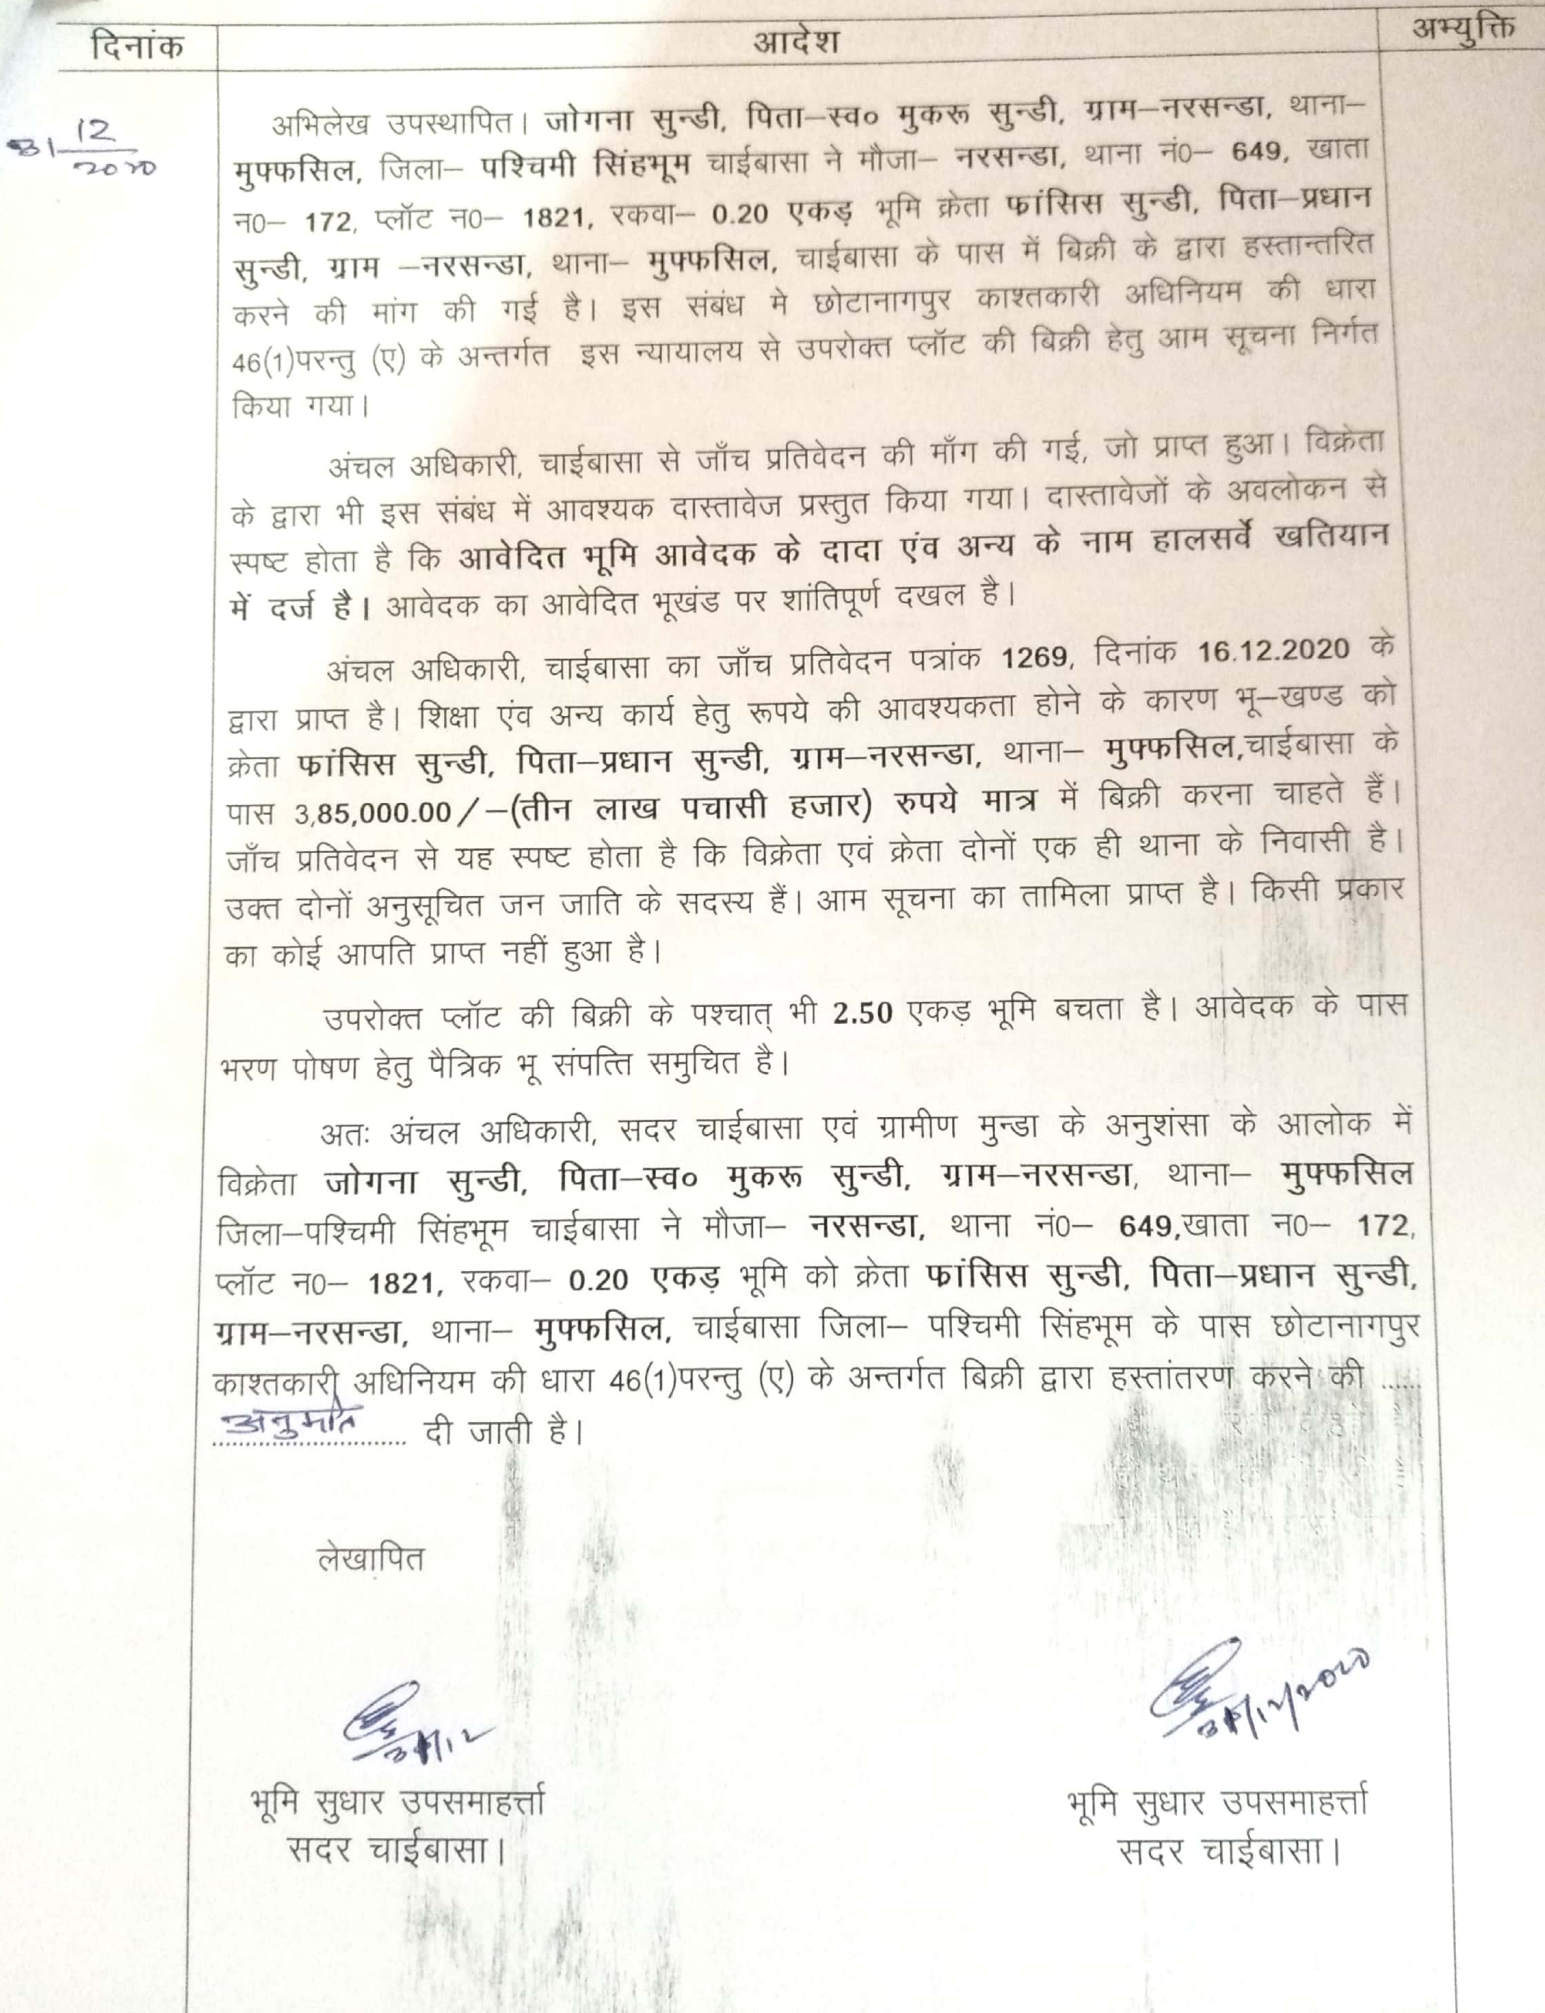 दिनांक
आदेश
अभ्युक्ति
31 12
2020
अभिलेख उपस्थापित। जोगना सुन्डी, पिता–स्व० मुकरू सुन्डी, ग्राम–नरसन्डा, थाना–
मुफ्फसिल, जिला– पश्चिमी सिंहभूम चाईबासा ने मौजा– नरसन्डा, थाना नं0– 649, खाता
न0– 172, प्लॉट न0– 1821, रकवा– 0.20 एकड़ भूमि क्रेता फांसिस सुन्डी, पिता–प्रधान
सुन्डी, ग्राम –नरसन्डा, थाना– मुफ्फसिल, चाईबासा के पास में बिक्री के द्वारा हस्तान्तरित
करने की मांग की गई है। इस संबंध मे छोटानागपुर काश्तकारी अधिनियम की धारा
46(1)परन्तु (ए) के अन्तर्गत इस न्यायालय से उपरोक्त प्लॉट की बिक्री हेतु आम सूचना निर्गत
किया गया।
अंचल अधिकारी, चाईबासा से जाँच प्रतिवेदन की माँग की गई, जो प्राप्त हुआ। विक्रेता
के द्वारा भी इस संबंध में आवश्यक दास्तावेज प्रस्तुत किया गया। दास्तावेजों के अवलोकन से
स्पष्ट होता है कि आवेदित भूमि आवेदक के दादा एंव अन्य के नाम हालसर्वे खतियान
में दर्ज है। आवेदक का आवेदित भूखंड पर शांतिपूर्ण दखल है।
अंचल अधिकारी, चाईबासा का जाँच प्रतिवेदन पत्रांक 1269, दिनांक 16.12.2020 के
द्वारा प्राप्त है। शिक्षा एंव अन्य कार्य हेतु रूपये की आवश्यकता होने के कारण भू–खण्ड को
क्रेता फांसिस सुन्डी, पिता–प्रधान सुन्डी, ग्राम–नरसन्डा, थाना– मुफ्फसिल,चाईबासा के
पास 3,85,000.00/–(तीन लाख पचासी हजार) रुपये मात्र में बिक्री करना चाहते हैं।
जाँच प्रतिवेदन से यह स्पष्ट होता है कि विक्रेता एवं क्रेता दोनों एक ही थाना के निवासी है।
उक्त दोनों अनुसूचित जन जाति के सदस्य हैं। आम सूचना का तामिला प्राप्त है। किसी प्रकार
का कोई आपति प्राप्त नहीं हुआ है।
उपरोक्त प्लॉट की बिक्री के पश्चात् भी 2.50 एकड़ भूमि बचता है। आवेदक के पास
भरण पोषण हेतु पैत्रिक भू संपत्ति समुचित है।
अतः अंचल अधिकारी, सदर चाईबासा एवं ग्रामीण मुन्डा के अनुशंसा के आलोक में
विक्रेता जोगना सुन्डी, पिता–स्व० मुकरू सुन्डी, ग्राम–नरसन्डा, थाना– मुफ्फसिल
जिला–पश्चिमी सिंहभूम चाईबासा ने मौजा– नरसन्डा, थाना नं0– 649,खाता न0– 172,
प्लॉट न0– 1821, रकवा– 0.20 एकड़ भूमि को क्रेता फांसिस सुन्डी, पिता–प्रधान सुन्डी,
ग्राम–नरसन्डा, थाना– मुफ्फसिल, चाईबासा जिला– पश्चिमी सिंहभूम के पास छोटानागपुर
काश्तकारी अधिनियम की धारा 46(1)परन्तु (ए) के अन्तर्गत बिक्री द्वारा हस्तांतरण करने की ......
अनुमति दी जाती है।
लेखापित
31/12
31/12/2020
भूमि सुधार उपसमाहर्त्ता
सदर चाईबासा।
भूमि सुधार उपसमाहर्त्ता
सदर चाईबासा।